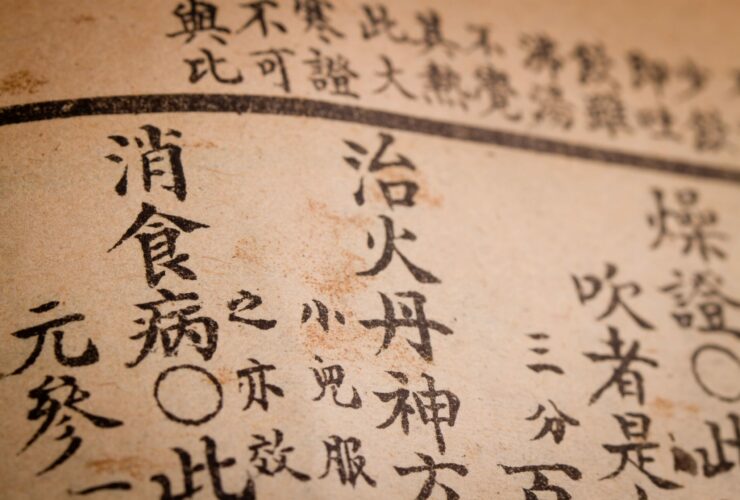 少飲
即吐
飲雖
沸湯
不覺
其熱
此大
寒證
不可
與比
燥證○此
吹者是
三分百
治火丹神方
小兒服
之亦效
消食病○此
元參一